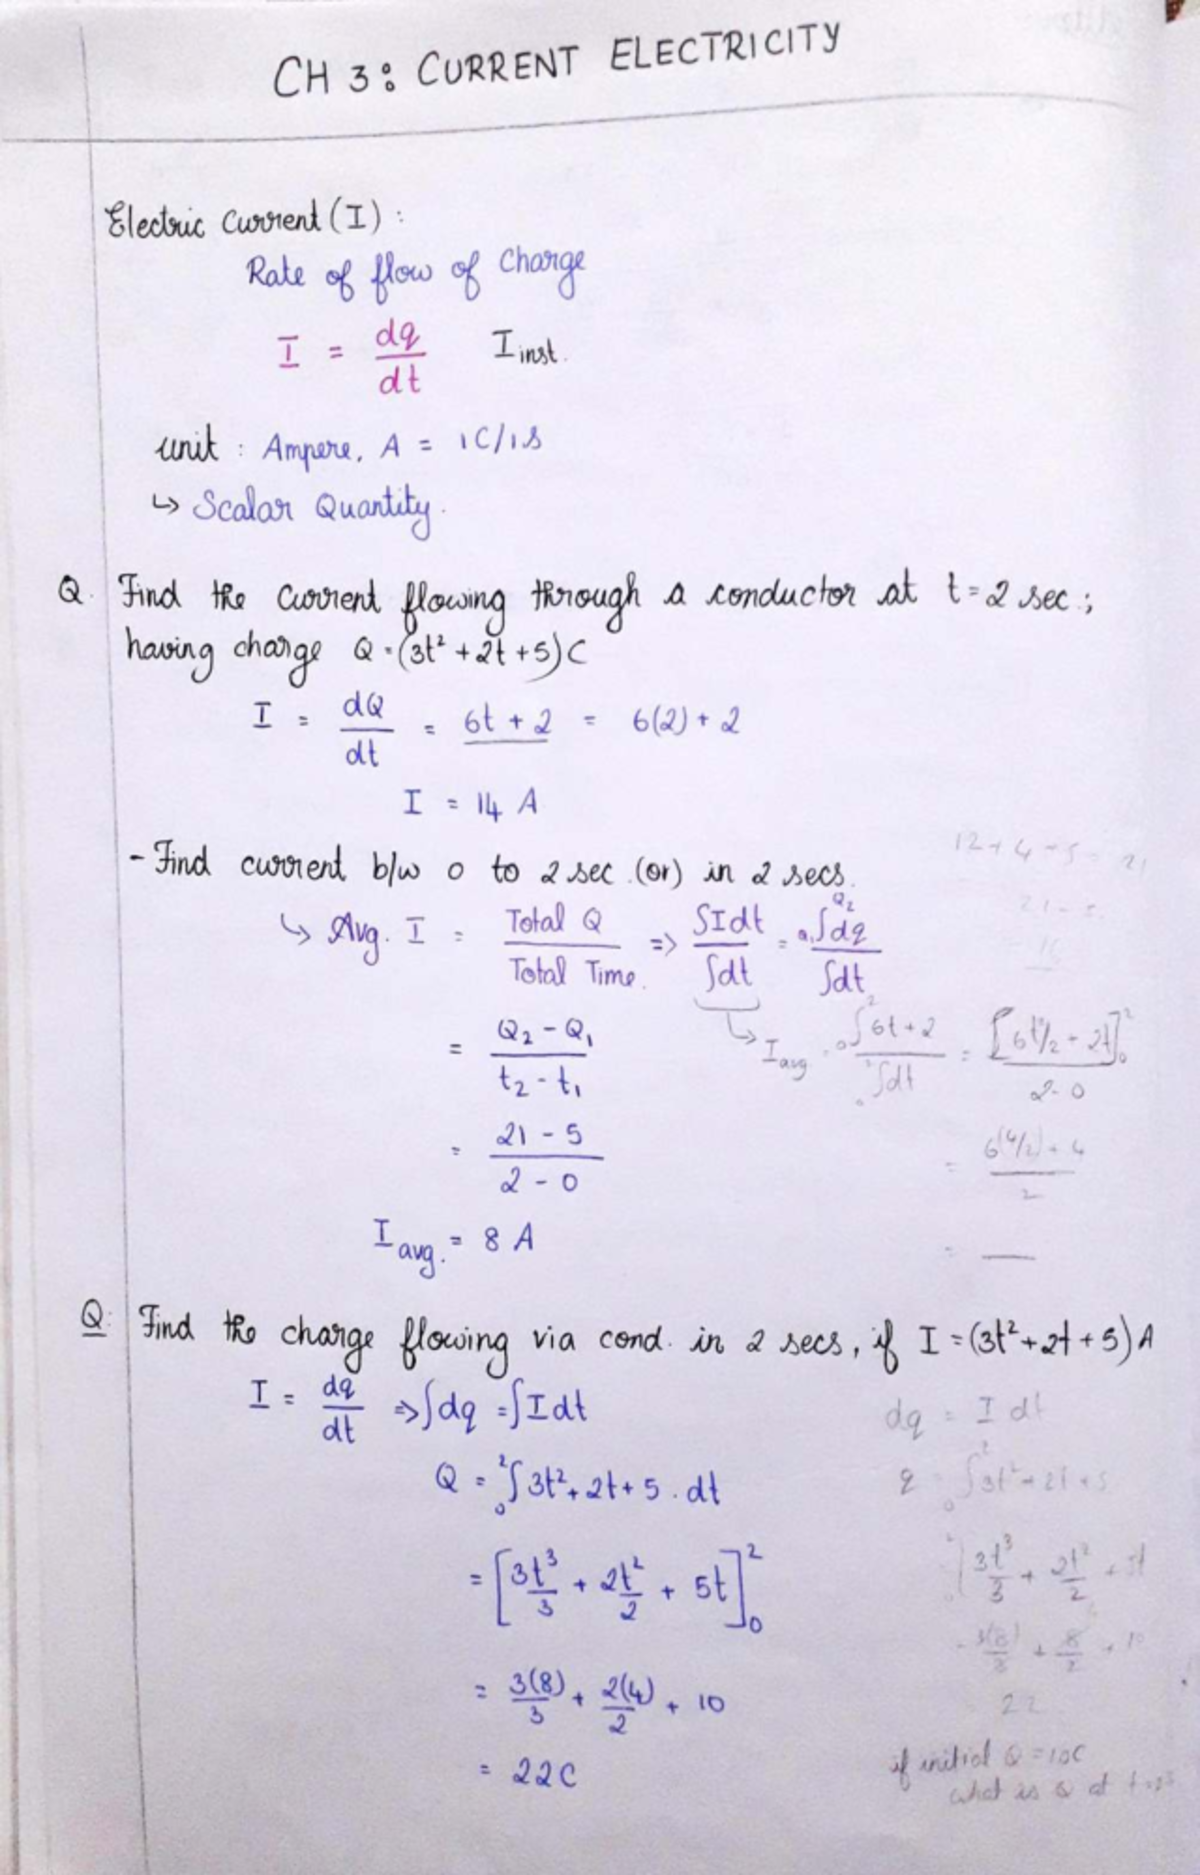 CH 3: CURRENT ELECTRICITY
Electric Current (I) :
Rate of flow of Charge
I = dq/dt I inst.
unit : Ampere, A = 1C/1s
↳ Scalar Quantity.
Q. Find the current flowing through a conductor at t = 2 sec ;
having charge Q = (3t² + 2t + 5) C
I = dQ/dt = 6t + 2 = 6(2) + 2
I = 14 A
- Find current b/w 0 to 2 sec. (or) in 2 secs.
12 + 4 + 5 = 21
21 - 5
= 16
↳ Avg. I = Total Q / Total Time. => ∫Idt / ∫dt = Q₁∫^Q₂ dq / ∫dt
= Q₂ - Q₁ / t₂ - t₁
↳ I avg = ₀∫² 6t + 2 / ₀∫² dt = [6t²/2 + 2t]²₀ / 2 - 0
= 21 - 5 / 2 - 0
= 6(4/2) + 4 / 2
I avg. = 8 A
= —
Q: Find the charge flowing via cond. in 2 secs, if I = (3t² + 2t + 5) A
I = dq/dt => ∫dq = ∫Idt
dq = I dt
Q = ₀∫² 3t² + 2t + 5 . dt
q = ₀∫² 3t² + 2t + 5
= [3t³/3 + 2t²/2 + 5t]²₀
3t³/3 + 2t²/2 + 5t
= 3(8)/3 + 2(4)/2 + 10
3(8)/3 + 8/2 + 10
= 22C
22
if initial Q = 10C
what is Q at